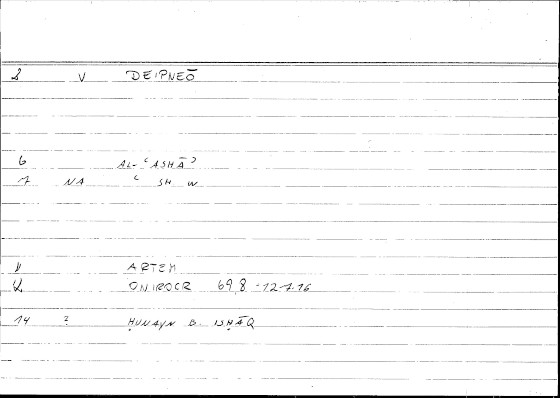 8 V DEIPNEŌ
6 AL-ʿASHĀʾ
7 NA ʿ SH W
11 ARTEM
12 ONIROCR 69,8 -12-7.16
14 ? ḤUNAYN B. ISḤĀQ